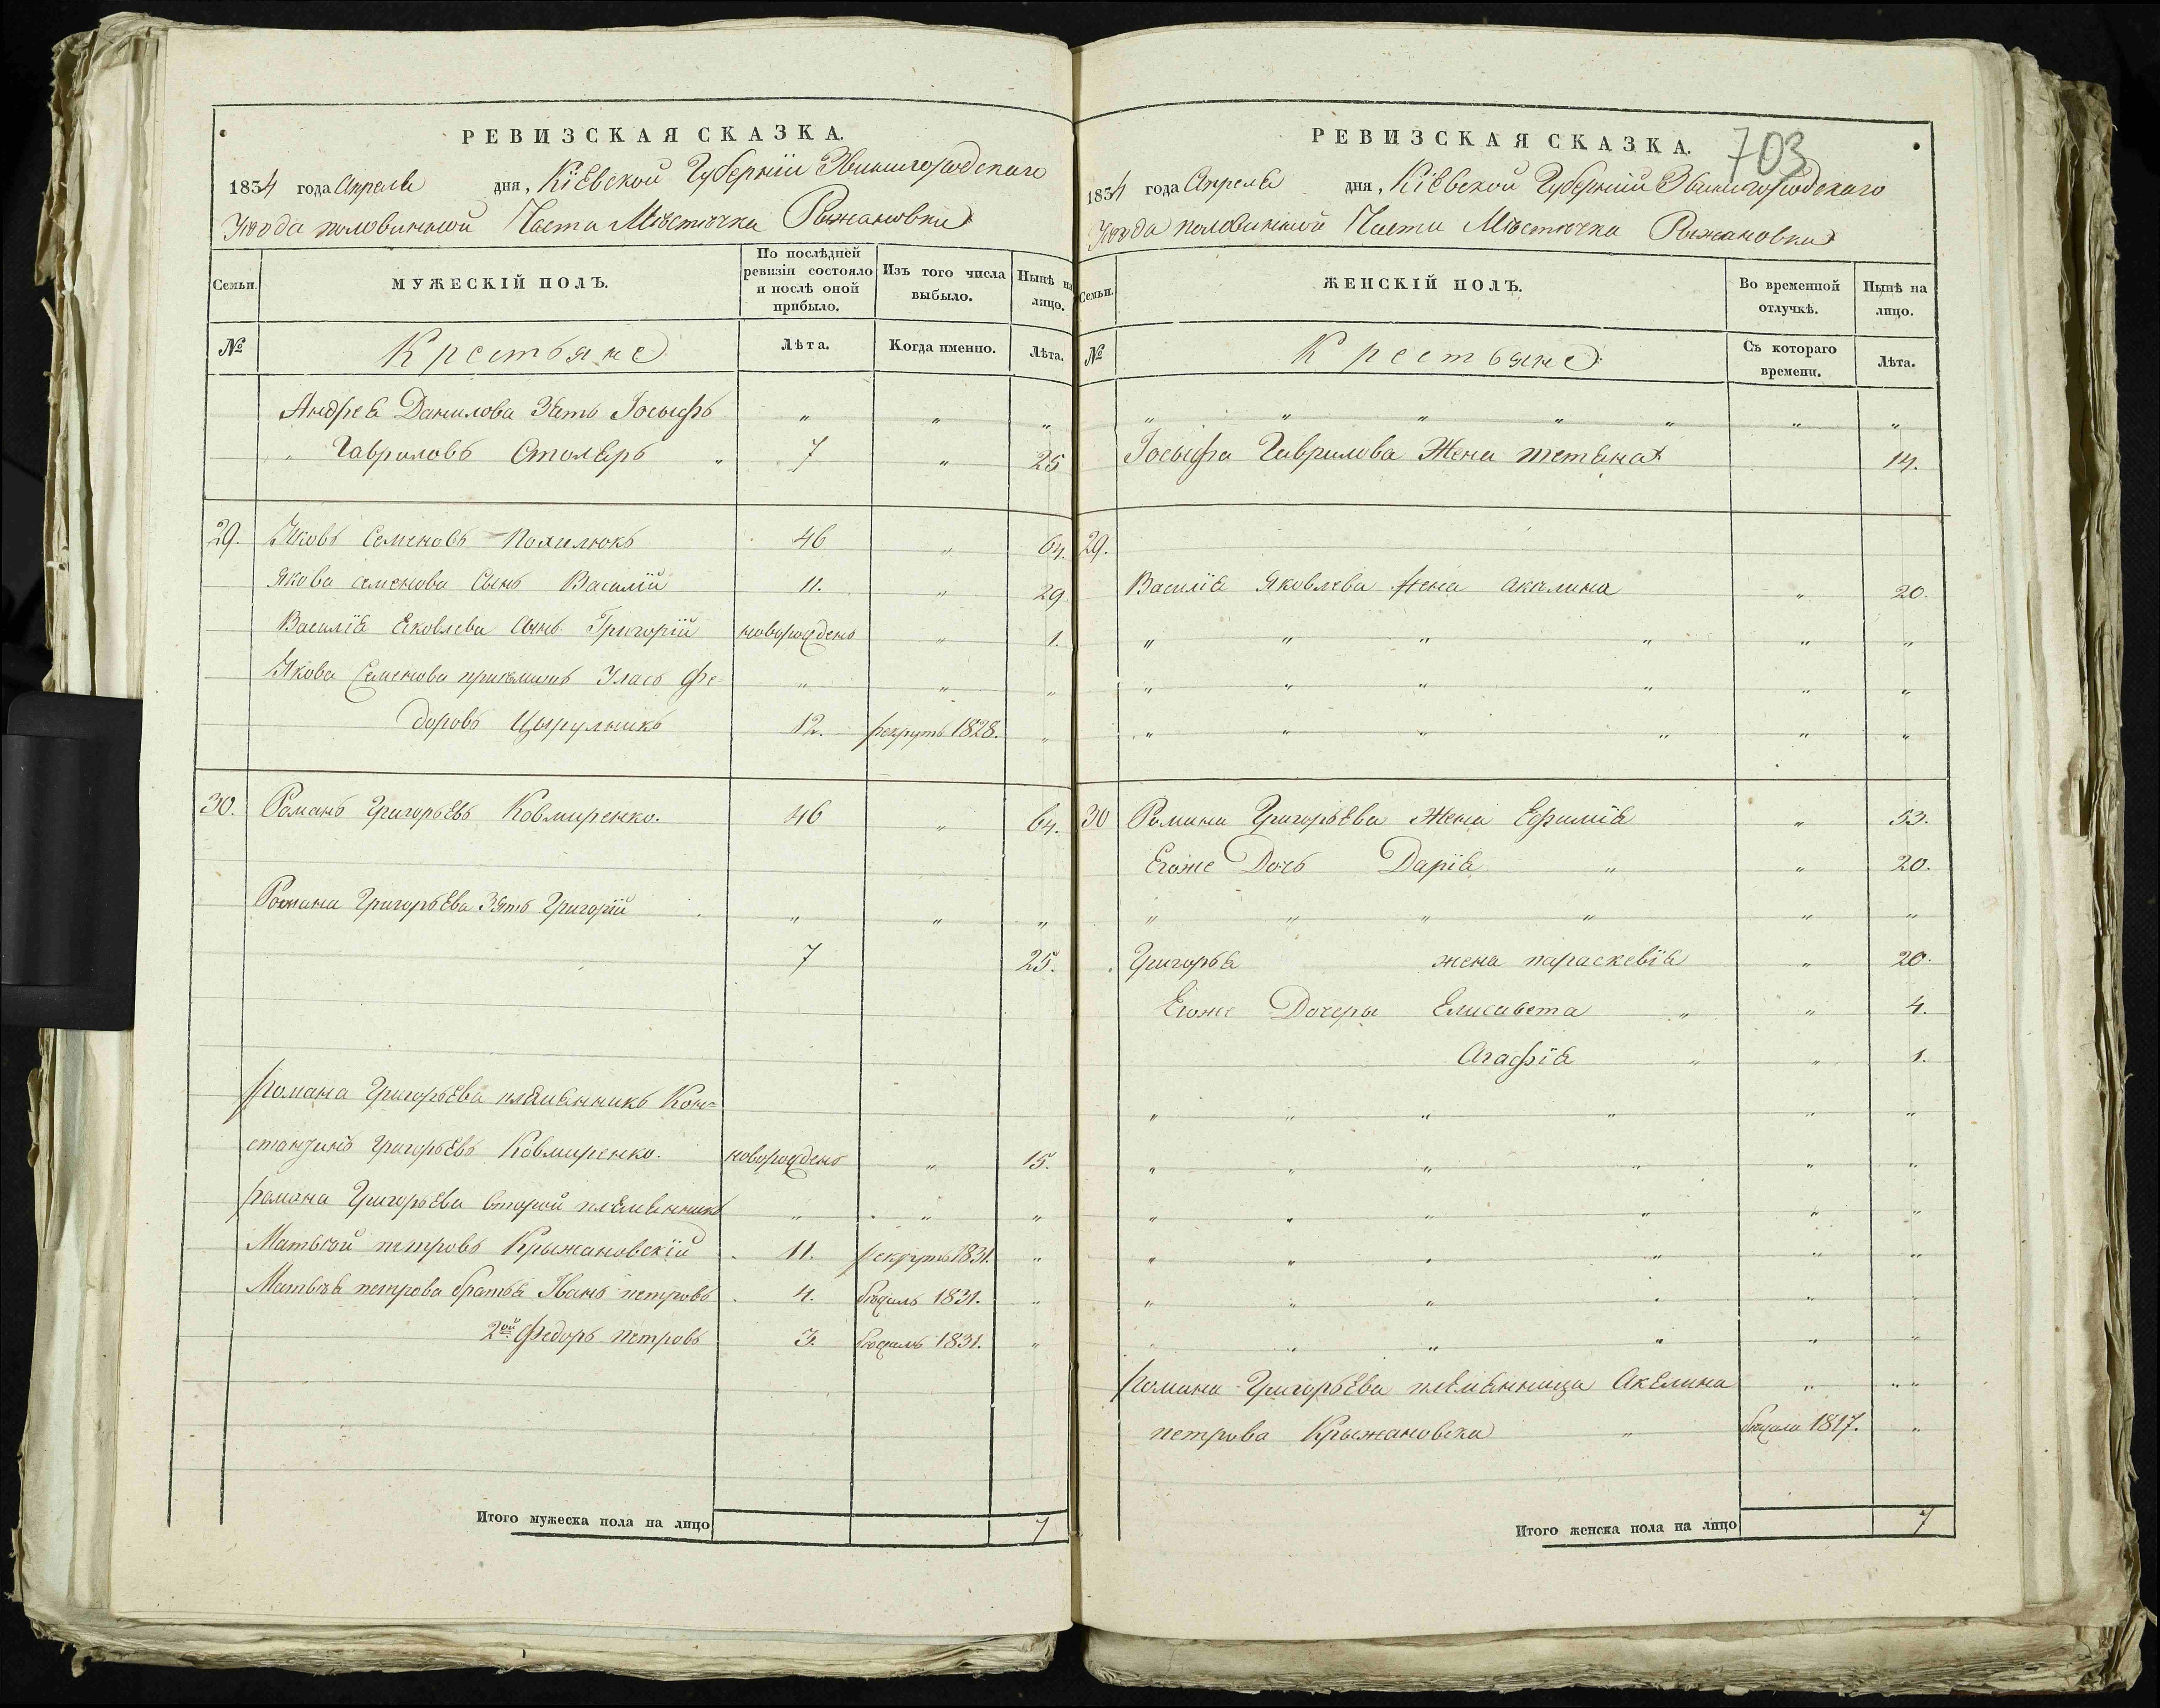 РЕВИЗСКАЯ СКАЗКА.
1834 года Апреля дня, Кіевской Губерніи Звинигородскаго
Уезда половинной Части Мѣстечка Рыжановки
Семьи. МУЖЕСКІЙ ПОЛЪ. По послѣдней ревизіи состояло и послѣ оной прибыло. Изъ того числа выбыло. Нынѣ на лицо.
№ Крестьяне Лѣта. Когда именно. Лѣта.
Андрея Данилова Зять Іосыфъ " " "
" Гавриловъ Столяръ " 7 " 25
29. Яковъ Семеновъ Похилюкъ 46 " 64.
Якова семенова Сынъ Василій 11. " 29
Василія Яковлева Сынъ Григорій новорожденъ " 1.
Якова Семенова приемышъ Уласъ Фе- " " "
доровъ Цырулникъ 12. рекрутъ 1828. "
30. Романъ Григорьевъ Ковмиренко. 46 " 64.
Романа Григорьева Зять Григорій " " "
7 25.
Романа Григорьева племянникъ Кон-
стантинъ Григорьевъ Ковмиренко. новорожденъ " 15.
Романа Григорьева второй племянникъ " " "
Матвѣй петровъ Крыжановскій 11. рекрутъ 1831. "
Матвѣя петрова братья Иванъ петровъ 4. бѣжалъ 1831. "
2ой Федоръ петровъ 3. бѣжалъ 1831. "
Итого мужеска пола на лицо 7
РЕВИЗСКАЯ СКАЗКА.
703
1834 года Апреля дня, Кіевской Губерніи Звинигородскаго
Уезда половинной Части Мѣстечка Рыжановки
Семьи. ЖЕНСКІЙ ПОЛЪ. Во временной отлучкѣ. Нынѣ на лицо.
№ Крестьяне Съ котораго времени. Лѣта.
" " " " " " "
Іосыфа Гаврилова Жена тетяна 19.
29.
Василія Яковлева Жена акилина " 20.
" " " " " "
" " " " " "
" " " " " "
30 Романа Григорьева Жена Ефимія " 53.
Егоже Дочь Дарія " " 20.
" " " " " "
Григорья жена параскевія " 20.
Егоже Дочеры Елисавета " " 4.
Агафія " " 1.
" " " " " "
" " " " " "
" " " " " "
" " " " " "
" " " " " "
" " " " " "
Романа Григорьева племянница Акелина " "
петрова Крыжановска " бѣжала 1817. "
Итого женска пола на лицо 7